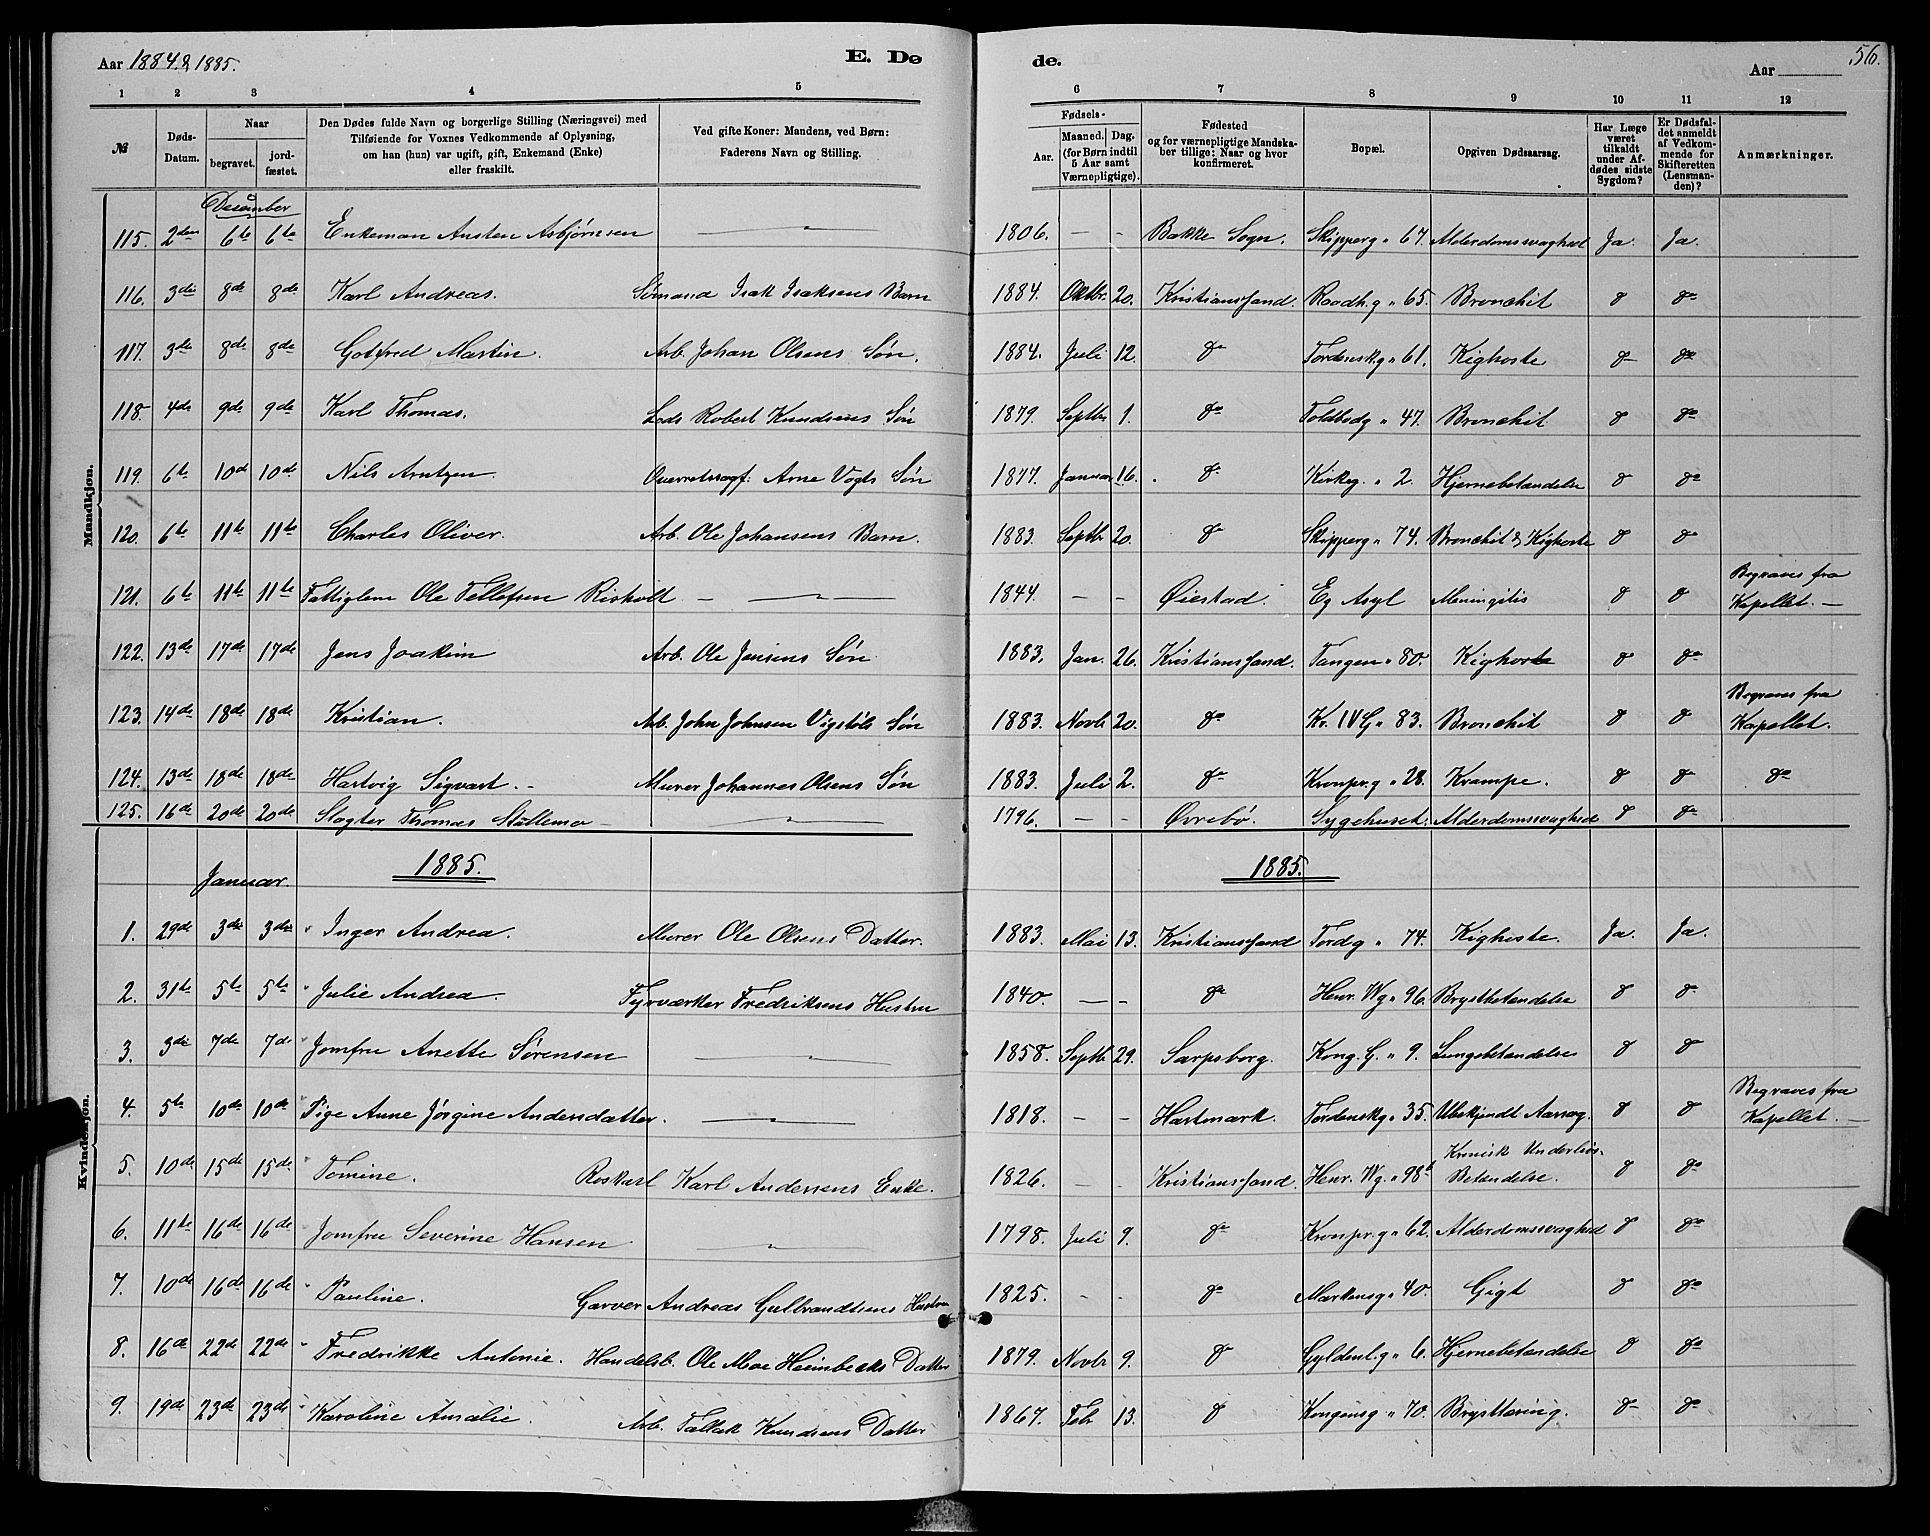 Aar 1884 & 1885.
E. Dø
de.
Aar
56.
1 2 3 4 5 6 7 8 9 10 11 12
№
Døds-Datum.
Naar
begravet.
jord-fæstet.
Den Dødes fulde Navn og borgerlige Stilling (Næringsvei) med
Tilføiende for Voxnes Vedkommende af Oplysning,
om han (hun) var ugift, gift, Enkemand (Enke)
eller fraskilt.
Ved gifte Koner: Mandens, ved Børn:
Faderens Navn og Stilling.
Fødsels-
Aar.
Maaned.
Dag.
(for Børn indtil
5 Aar samt
Værnepligtige).
Fødested
og for værnepligtige Mandska-
ber tillige: Naar og hvor
konfirmeret.
Bopæl.
Opgiven Dødsaarsag.
Har Læge
været
tilkaldt
under Af-
dødes sidste
Sygdom?
Er Dødsfal-
det anmeldt
af Vedkom-
mende for
Skifteretten
(Lensman-
den)?
Anmærkninger.
Mandkjøn.
December
115. 2den 6te 6te Enkeman Austen Asbjørnsen — " — 1806. — - Bakke Sogn. Skipperg " 67. Alderdomssvaghed Ja. Ja.
116. 3die 8de 8de Karl Andreas. Sømand Isak Isaksens Barn 1884. Oktbr. 20. Kristianssand. Raadh.g " 65. Bronchit do do
117. 3die 8de 8de Gotfred Martin. Arb. Johan Olsens Søn. 1884. Juli 12. do Tordenskg " 61. Kighoste do do
118. 4de 9de 9de Karl Thomas. Lods Robert Knudsens Søn 1879. Septbr 1. do Toldbodg " 47. Bronchit do do
119. 6te 10d 10d. Nils Arntzen. Overretssagf: Arne Vogts Søn 1877. Januar 16. do Kirkeg. " 2. Hjernebetændelse do do
120. 6te 11te 11te Charles Oliver. Arb. Ole Johansens Barn. 1883. Septbr 20. do Skipperg " 74. Bronchit & Kighoste do do
121. 6te 11te 11te Fattiglem Ole Tellefsen Risholt — " — 1844. — - Øiestad. Eg Asyl Meningitis do do Begraves fra
Kapellet. —
122. 13de 17de 17de Jens Joakim Arb. Ole Jensens Søn 1883. Jan. 26. Kristianssand. Tangen " 80. Kighoste do do
123. 14de 18de 18de Kristian. Arb. John Johnsen Vigstøls Søn 1883. Novbr 20. do Kr. IV G " 83. Bronchit do do Begraves fra
Kapellet.
124. 13de 18de 18de Hartvig Sigvart. - Murer Johannes Olsens Søn 1883. Juli 2. do Kronpr.g " 28. Krampe. do do do
125. 16de 20de 20de Slagter Thomas Stallemo — " — 1796. — - Øvrebø. Sygehuset. Alderdomssvaghed do do
1885.
1885.
Januar.
Kvindekjøn.
1. 29de 3die 3die Inger Andrea. Murer Ole Olsens Datter. 1883. Mai 13. Kristianssand Tordg " 74. Kighoste. Ja. Ja.
2. 31te 5te 5te Julie Andrea. Fyrværker Fredriksens Hustru 1840. — - do Henr. Wg " 96. Brystbetændelse do do
3. 3die 7de 7d Jomfru Anette Sørensen — " — 1858. Septbr 29. Sarpsborg. Kong. G. " 9. Lungebetændelse do do
4. 5te 10de 10de Pige Anne Jørgine Andersdatter. — " — 1818. - - Hartmark. Tordenskg " 35. Ubekjendt Aarsag. do do Begraves fra
Kapellet. —
5. 10de 15de 15de Tomine. Roskarl Karl Andersens Enke. 1826. - - Kristianssand. Henr. Wg. " 98b Kronisk Underlivs-
Betændelse. do do
6. 11te 16de 16de Jomfru Severine Hansen — " — 1798. Juli 9. do Kronpr.g " 62. Alderdomssvaghed do do
7. 10de 16de 16de Pauline. Garver Andreas Gulbrandsens Hustru 1825. - - do Markensg " 40. Gigt do do
8. 16de 22de 22de Fredrikke Antonie. Handelsb. Ole Moe Heimbecks Datter 1879. Novbr 9. do Gyldenl.g " 6. Hjernebetændelse do do
9. 19de 23de 23de Karoline Amalie. Arb. Tallak Knudsens Datter 1867. Febr 13. do Kongensg " 70. Brysttæring. do do